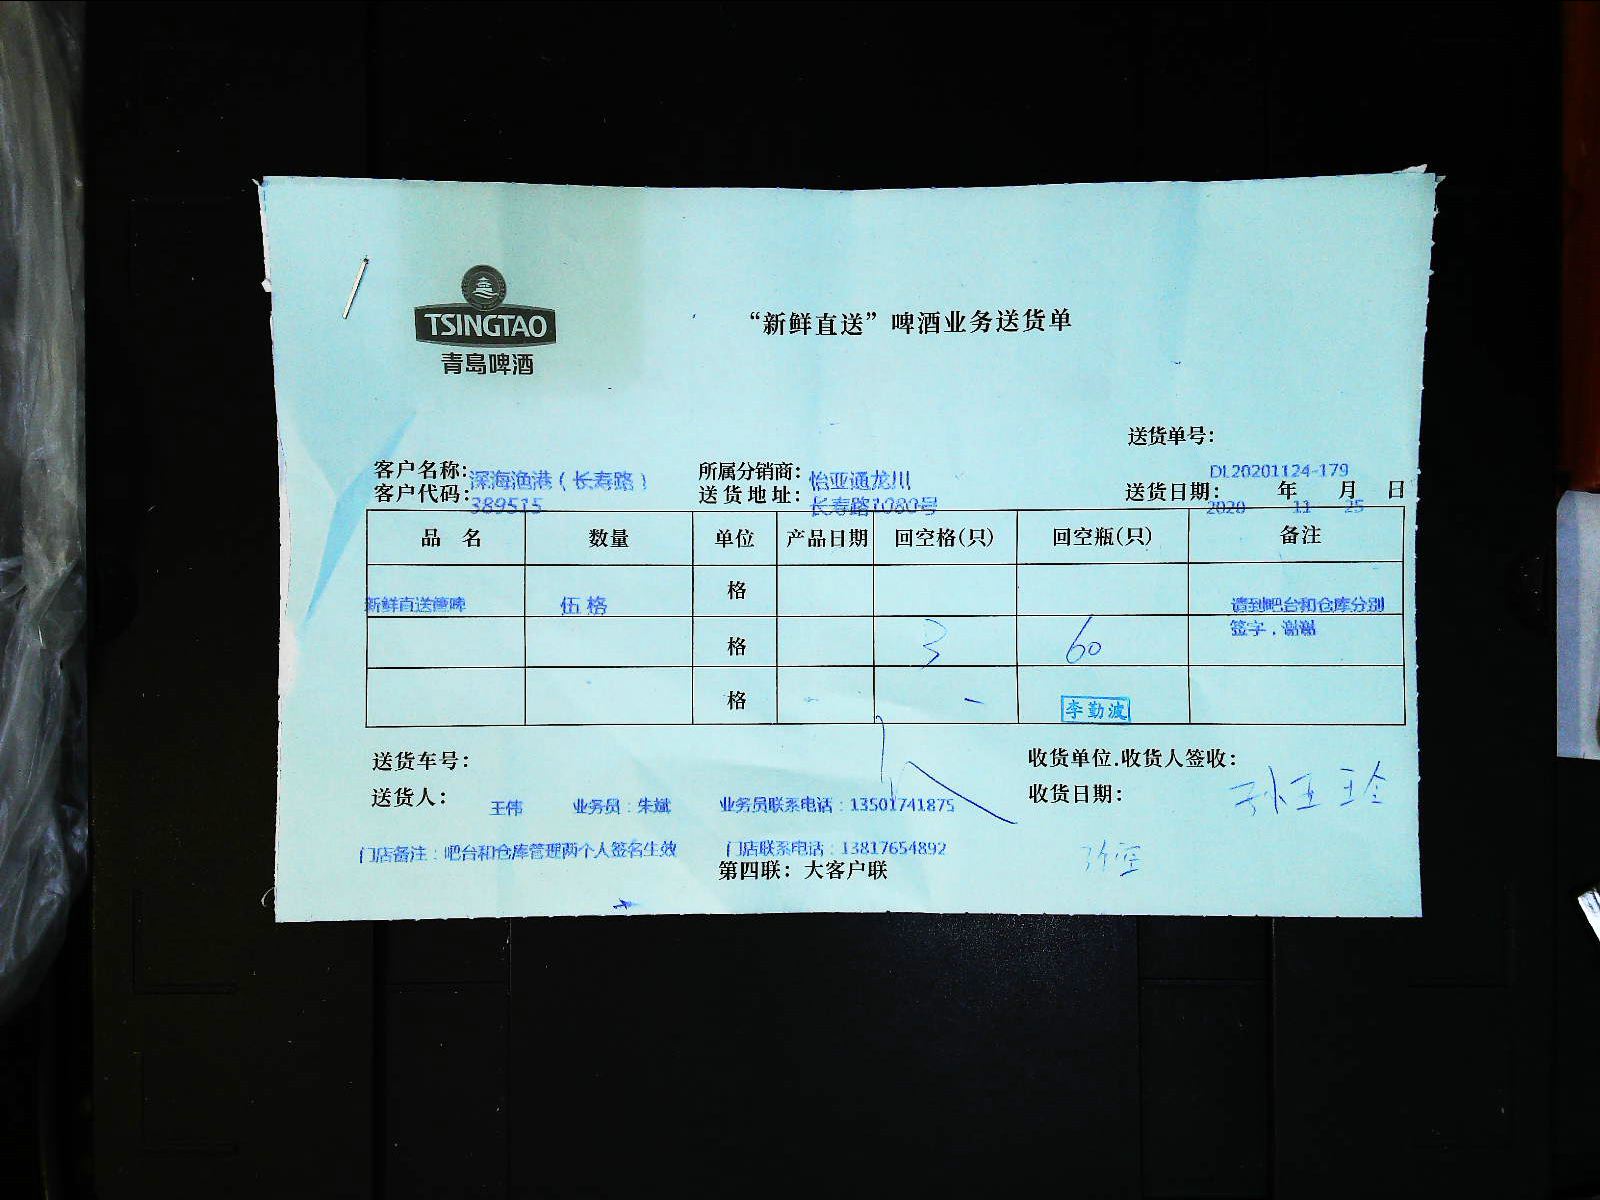 TSINGTAO
青岛啤酒
“新鲜直送”啤酒业务送货单
送货单号：
DL20201124-179
客户名称：深海渔港（长寿路） 所属分销商：怡亚通龙川
客户代码：389515 送货地址：长寿路1080号 送货日期：2020年11月25日
品 名 数量 单位 产品日期 回空格(只) 回空瓶(只) 备注
新鲜直送健啤 伍格 格 请到吧台和仓库分别
签字，谢谢
格 3 60
格 李勤波
送货车号： 收货单位.收货人签收：
送货人：王伟 业务员：朱斌 业务员联系电话：13501741875 收货日期：
孙玉玲
门店备注：吧台和仓库管理两个人签名生效 门店联系电话：13817654892
第四联：大客户联